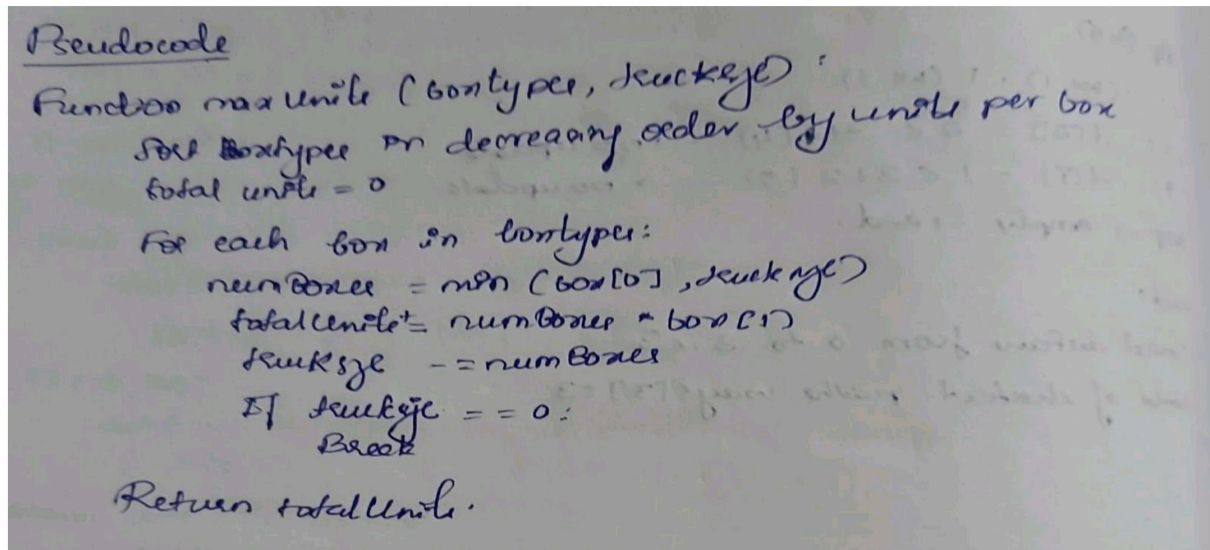 Pseudocode
Function maxUnits (boxtypes, trucksize) :
Sort Boxtypes in decreasing order by units per box
total units = 0
For each box in boxtypes:
numBoxes = min (box[0], trucksize)
totalUnits += numBoxes * box[1]
truksze -= numBoxes
If truksize == 0:
Break
Return totalUnits.